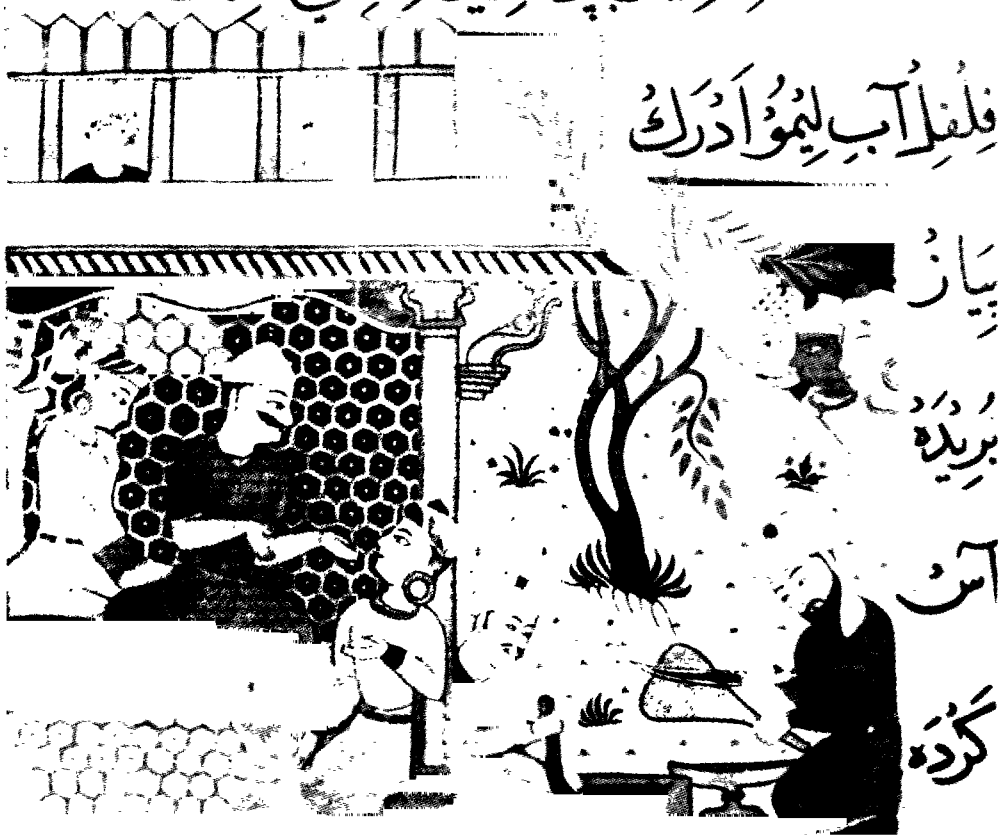 فِلْفِلْ آبِ لِيْمُوْ اَدْرَكْ
پِيَازْ
بُرِيْدَهْ
آسْ
كَرْدَهْ